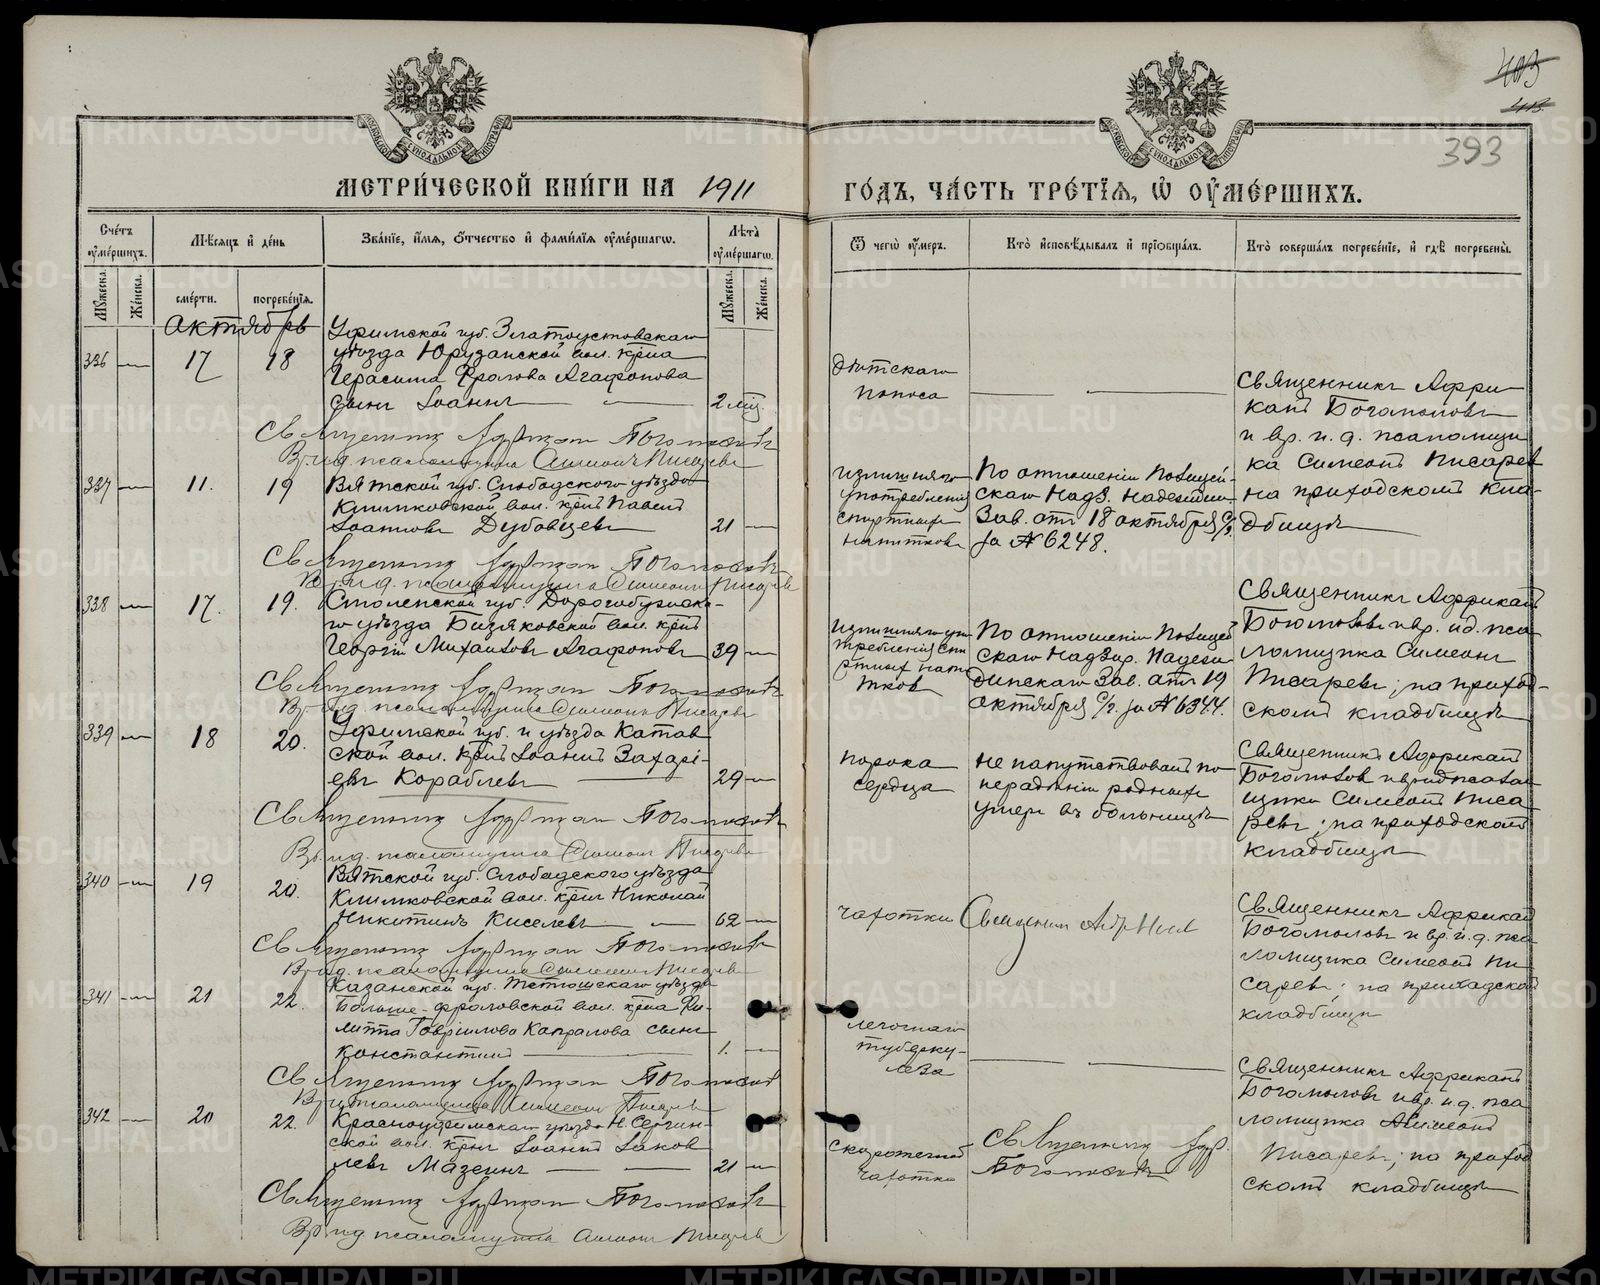 403
413
393
МОСКОВСКОЙ СѴНОДАЛЬНОЙ ТИПОГРАФІИ
МОСКОВСКОЙ СѴНОДАЛЬНОЙ ТИПОГРАФІИ
МЕТРИ́ЧЕСКОЙ КНИ́ГИ НА 1911 ГО́ДЪ, ЧА́СТЬ ТРЕ́ТІѦ, Ѿ ОУМЕ́РШИХЪ.
Счетъ оумершихъ.
Мужеска.
Женска.
Мѣсяцъ и день
смерти.
погребенія.
Званіе, имя, отчество и фамилія оумершагѡ.
Лѣта оумершагѡ.
Мужеска.
Женска.
Ѿ чегѡ оумеръ.
Кто исповѣдывалъ и пріобщалъ.
Кто совершалъ погребеніе, и гдѣ погребены.
Октябрь
336 — 17 18
Уфимской губ. Златоустовскаго
уѣзда Юрузанской вол. крна
Герасима Фролова Агафонова
сынъ Іоаннъ — 2 мѣс.
Дѣтскаго
поноса
Священникъ Африканъ
Богомоловъ
и вр. и. д. псаломщика
Симеонъ Писаревъ
на приходскомъ кладбищѣ
Священникъ Африкан Богомоловъ
Вр. и д. псаломщика Симеонъ Писаревъ
337 — 11. 19
Вятской губ. Слободского уѣзда
Климковской вол. крнъ Павелъ
Іоанновъ Дубовцевъ 21 —
излишняго
употребленія
спиртныхъ
напитковъ
По отношенію Полицейскаго
Надз. Надеждин.
Зав. отъ 18 октября с/г.
за № 6248.
Священникъ Африкан Богомоловъ
Вр. и д. псаломщика Симеонъ Писаревъ
338 — 17. 19.
Смоленской губ. Дорогобужска-
го уѣзда Бизяковской вол. крнъ
Георгій Михаиловъ Агафоновъ 39 —
излишняго упо
требленія спи
ртныхъ напи
тковъ
По отношенію Полицей
скаго Надзир. Надеж-
динскаго Зав. отъ 19
октября с/г. за № 6344.
Священникъ Африканъ
Богомоловъ и вр. и.д. пса
ломщика Симеонъ
Писаревъ; на приход-
скомъ кладбищѣ
Священникъ Африкан Богомоловъ
Вр. и д. псаломщика Симеонъ Писаревъ
339 — 18 20.
Уфимской губ. и уѣзда Катав
ской вол. крнъ Іоаннъ Захарі-
евъ Кораблевъ — 29 —
порока
сердца
не напутствованъ по
нерадѣнію родныхъ
умеръ въ больницѣ
Священникъ Африканъ
Богомоловъ и вр ид псалом
щика Симеонъ Писа
ревъ; на приходскомъ
кладбищѣ
Священникъ Африкан Богомоловъ
Вр. и д. псаломщика Симеонъ Писаревъ
340 — 19 20.
Вятской губ. Слободского уѣзда
Климковской вол. крнъ Николай
Никитинъ Киселевъ — 62 —
чахотки
Священникъ
Священникъ Африканъ
Богомоловъ и вр. и. д. пса
ломщика Симеонъ Пи
саревъ; на приходском
кладбищѣ
Священникъ Африкан Богомоловъ
Вр. и д. псаломщика Симеонъ Писаревъ
341 — 21 22.
Казанской губ. Тетюшскаго уѣзда
Больше-фроловской вол. крна Фи-
липпа Гавріилова Капралова сынъ
Константинъ — 1. —
легочнаго
туберку-
леза
Священникъ Африканъ
Богомоловъ и вр. и. д. пса
ломщика Симеонъ
Писаревъ; на приход
скомъ кладбищѣ
Священникъ Африкан Богомоловъ
Вр. и д. псаломщика Симеонъ Писаревъ
342 — 20 22.
Красноуфимскаго уѣзда Н. Сергин-
ской вол. крнъ Іоаннъ Іаков
левъ Мазеинъ — 21 —
скоротечной
чахотки
Священникъ Афр.
Богомоловъ
Священникъ Африкан Богомоловъ
Вр. ид псаломщика Симеонъ Писаревъ
METRIKI.GASO-URAL.RU